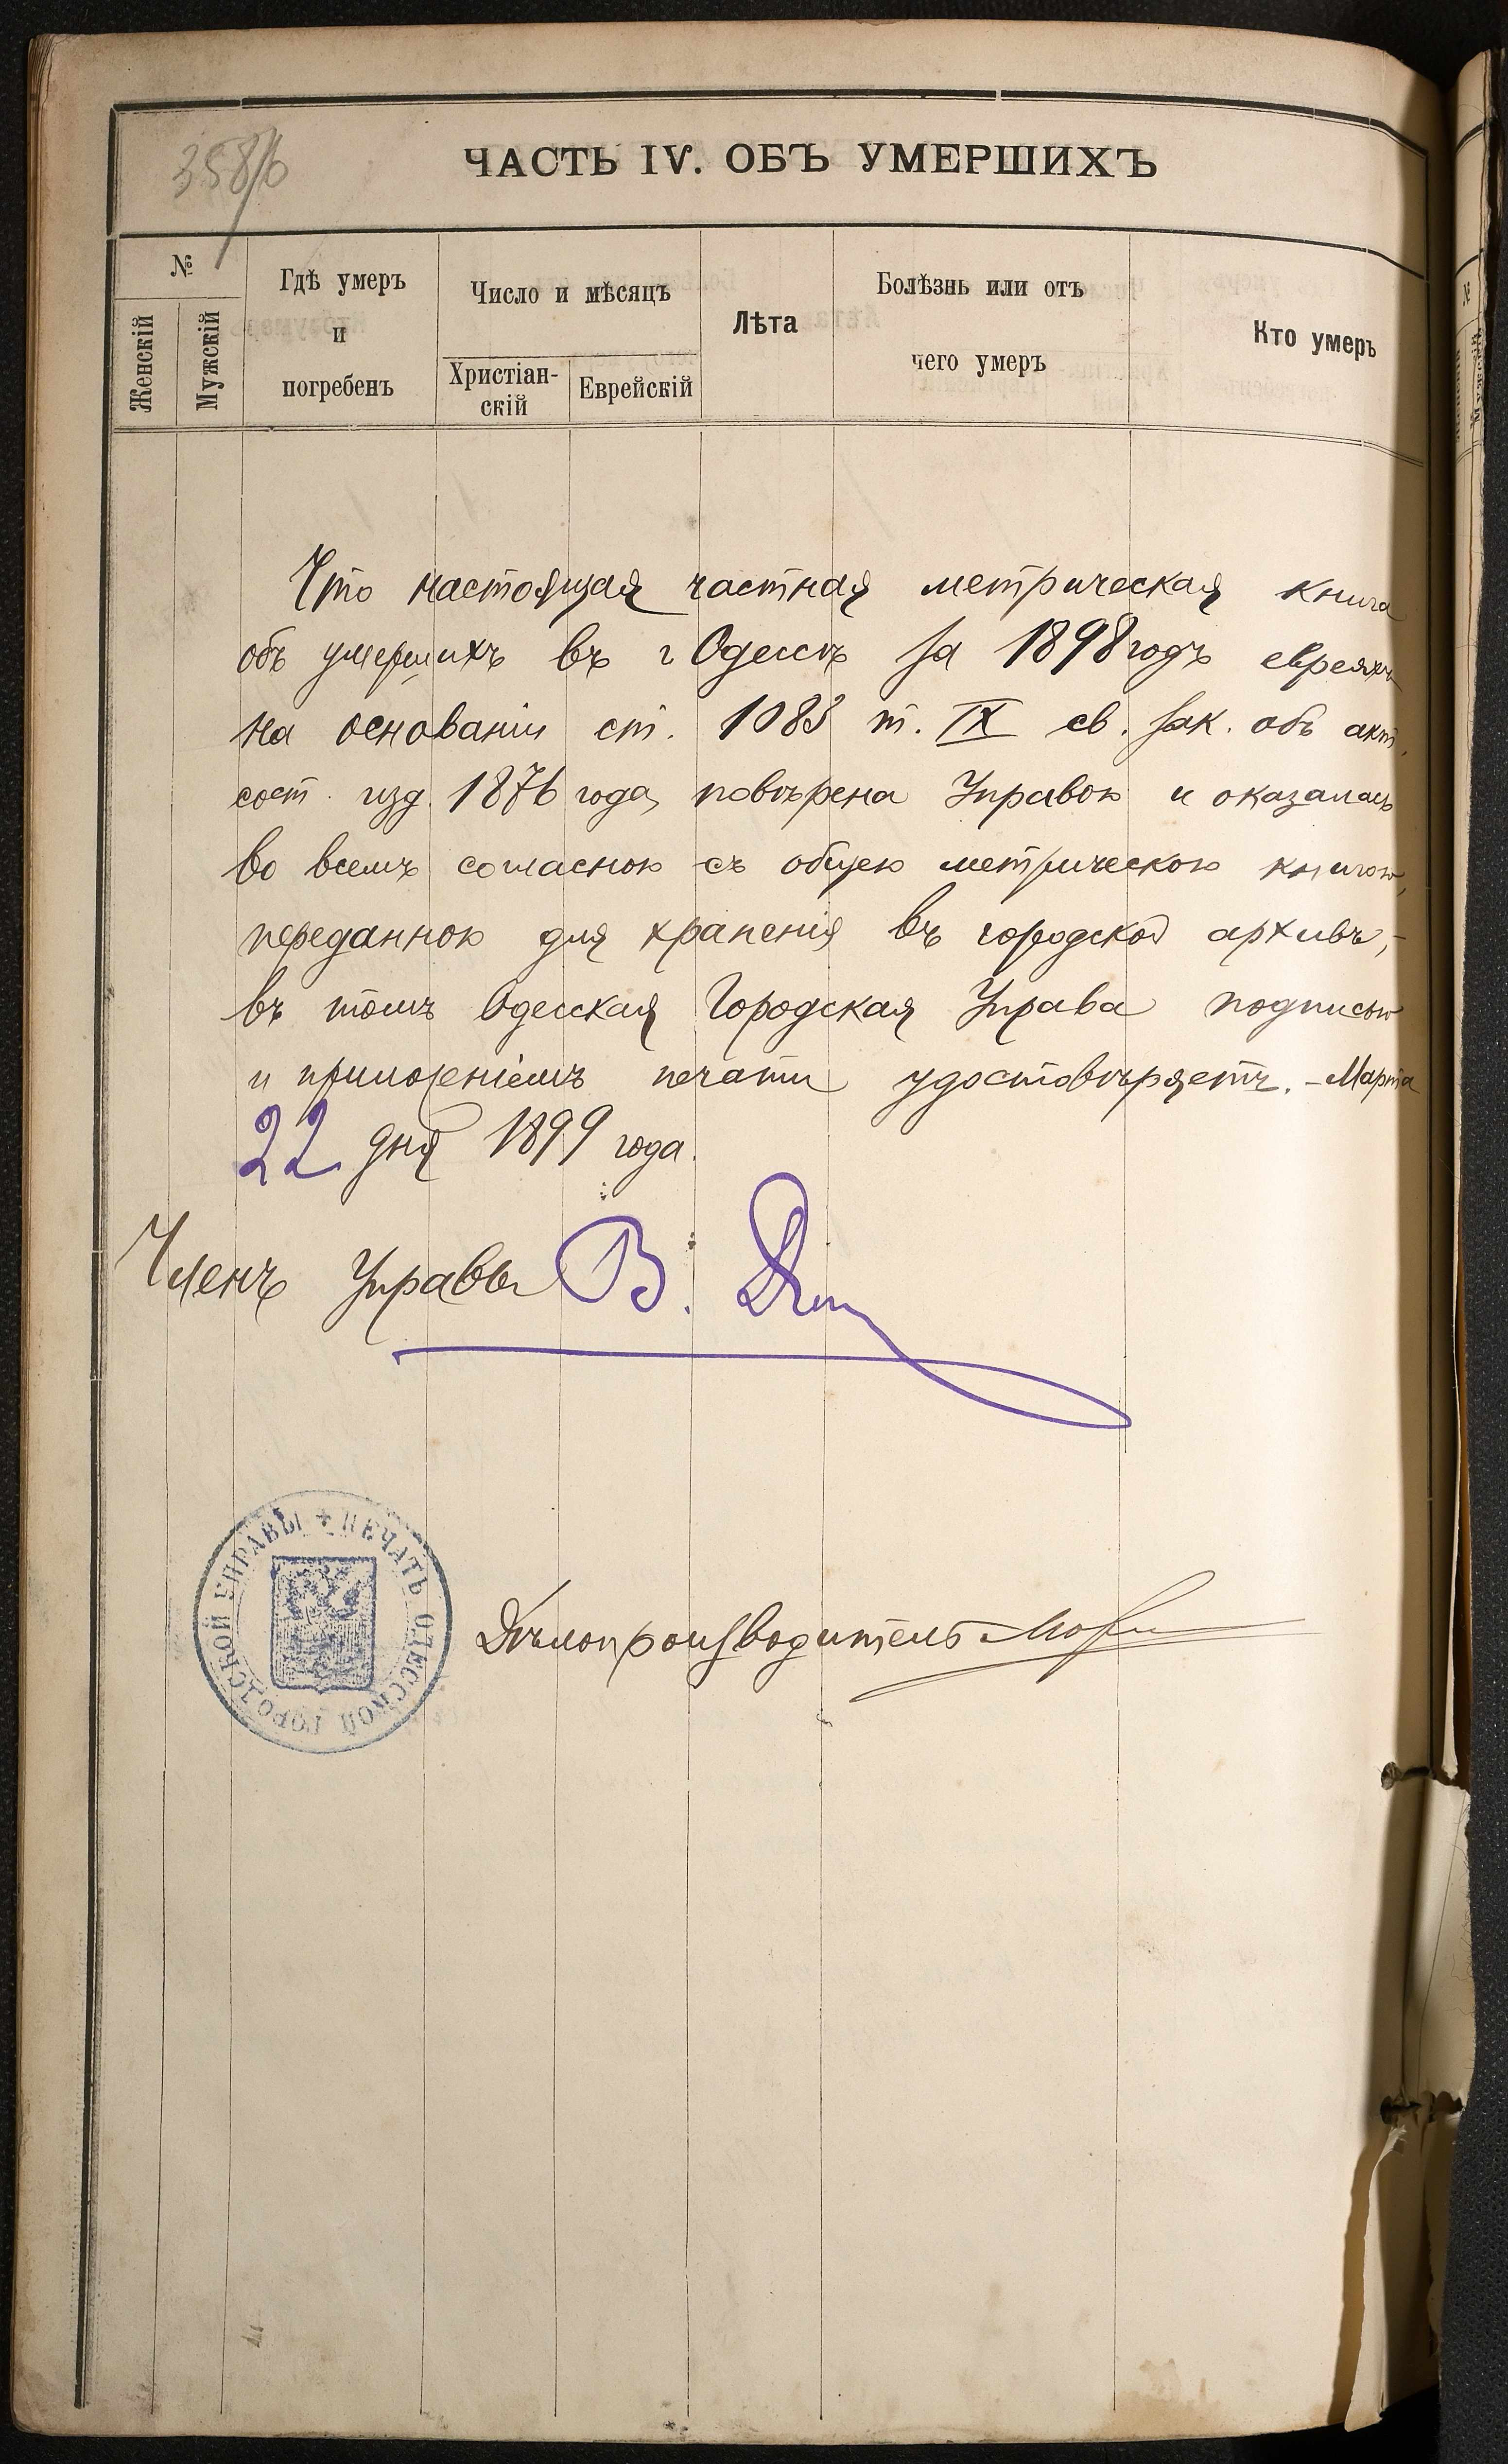 358/б
ЧАСТЬ IV. ОБЪ УМЕРШИХЪ
№
Женскій
Мужскій
Гдѣ умеръ
и
погребенъ
Число и мѣсяцъ
Христіан-
скій
Еврейскій
Лѣта
Болѣзнь или отъ
чего умеръ
Кто умеръ
Что настоящая частная метрическая книга
объ умершихъ въ г Одессѣ за 1898 годъ евреяхъ
на основаніи ст. 1083 т. IX св. зак. объ акт.
сост. изд. 1876 года, повѣрена Управою и оказалась
во всемъ согласною съ общею метрическою книгою,
переданною для храненія въ городской архивъ,-
въ томъ Одесская Городская Управа подписью
и приложеніемъ печати удостовѣряетъ. - Марта
22 дня 1899 года.
Членъ Управы В.
ПЕЧАТЬ ОДЕССКОЙ ГОРОДСКОЙ УПРАВЫ
Дѣлопроизводитель